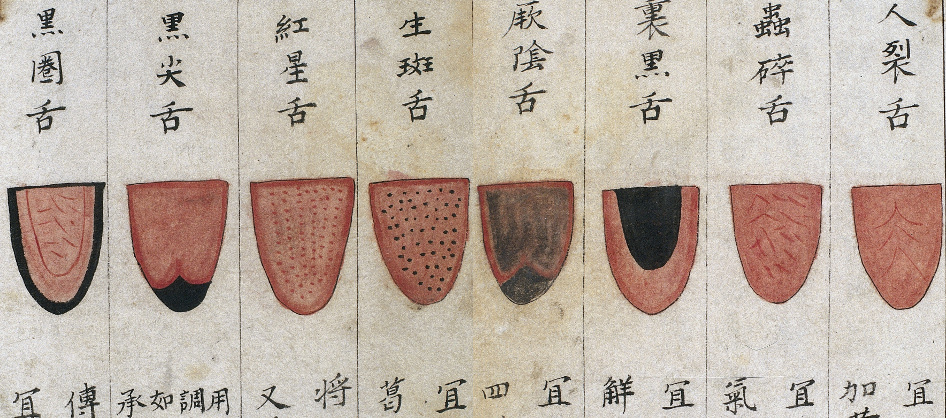 人裂舌
蟲碎舌
裏黑舌
厥陰舌
生斑舌
紅星舌
黑尖舌
黑圈舌
宜
加
宜
氣
宜
解
宜
四
宜
葛
將
又
用
調
如
承
傳
宜